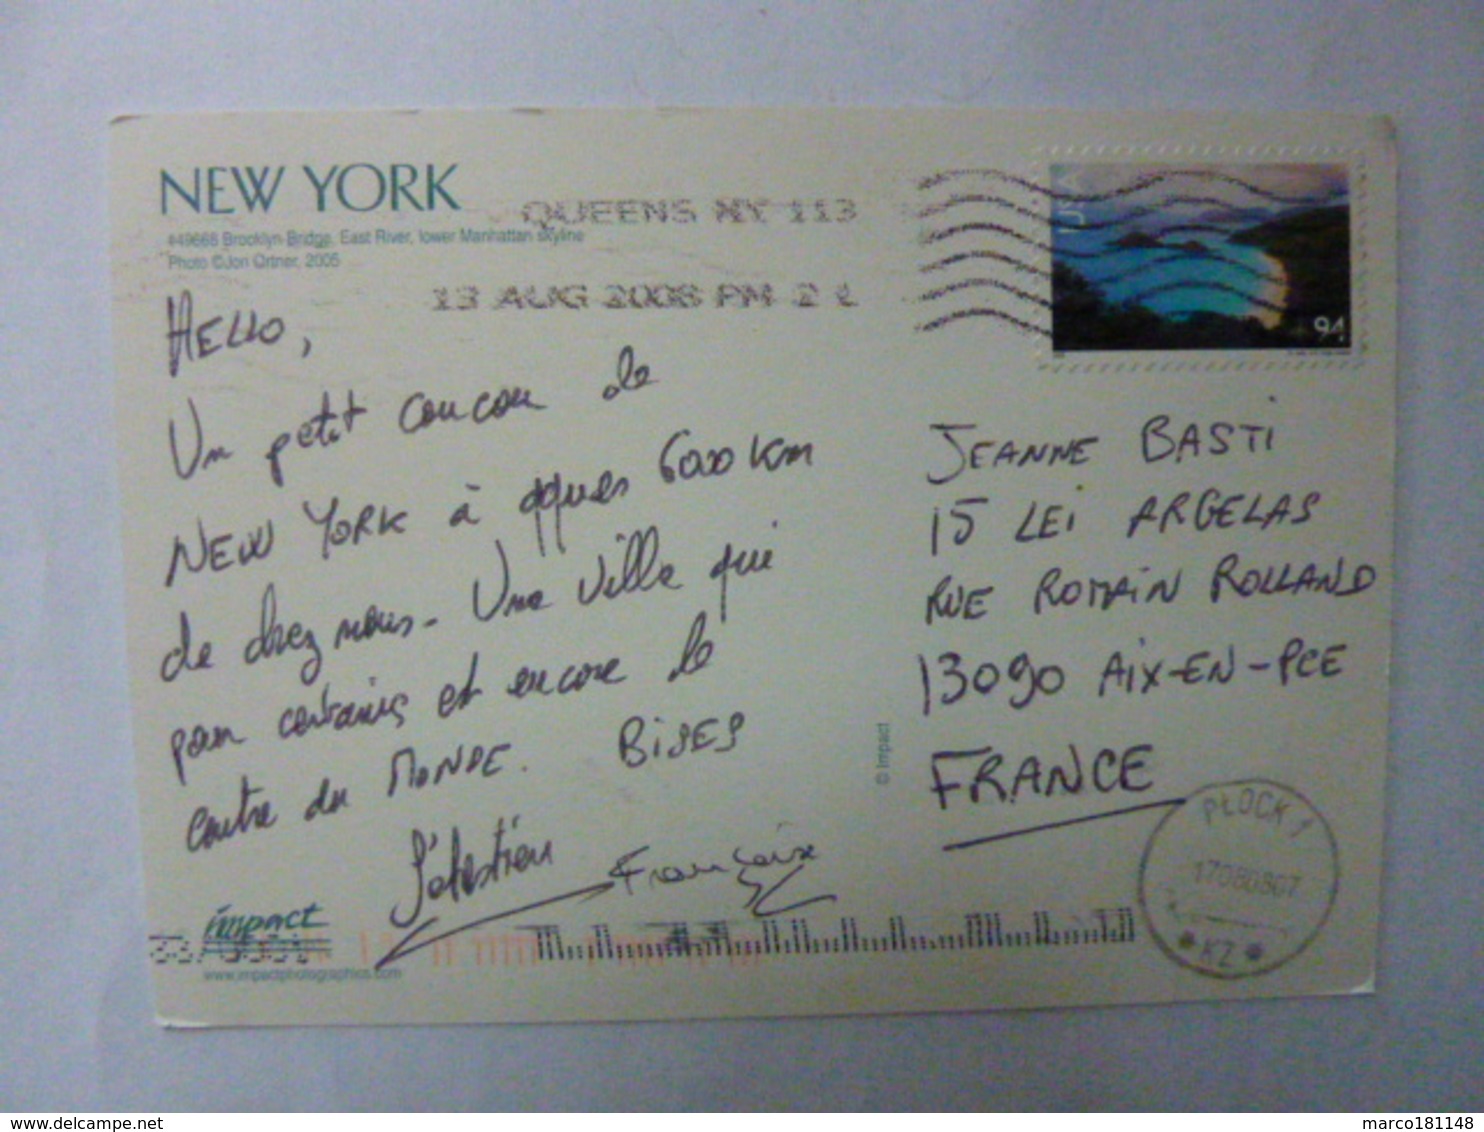 NEW YORK
#49668 Brooklyn Bridge, East River, lower Manhattan skyline
Photo ©Jon Ortner, 2005
QUEENS NY 113
13 AUG 2008 PM 2 L
USA
94
HELLO,
Un petit coucou de
NEW YORK à qques 6000 km
de chez nous. Une ville qui
pour certains est encore le
centre du MONDE. BISES
Sébastien
Françoise
JEANNE BASTI
15 LEI ARGELAS
RUE ROMAIN ROLLAND
13090 AIX-EN-PCE
FRANCE
© Impact
PŁOCK 1
17080807
* KZ *
impact
www.impactphotographics.com
marco181148